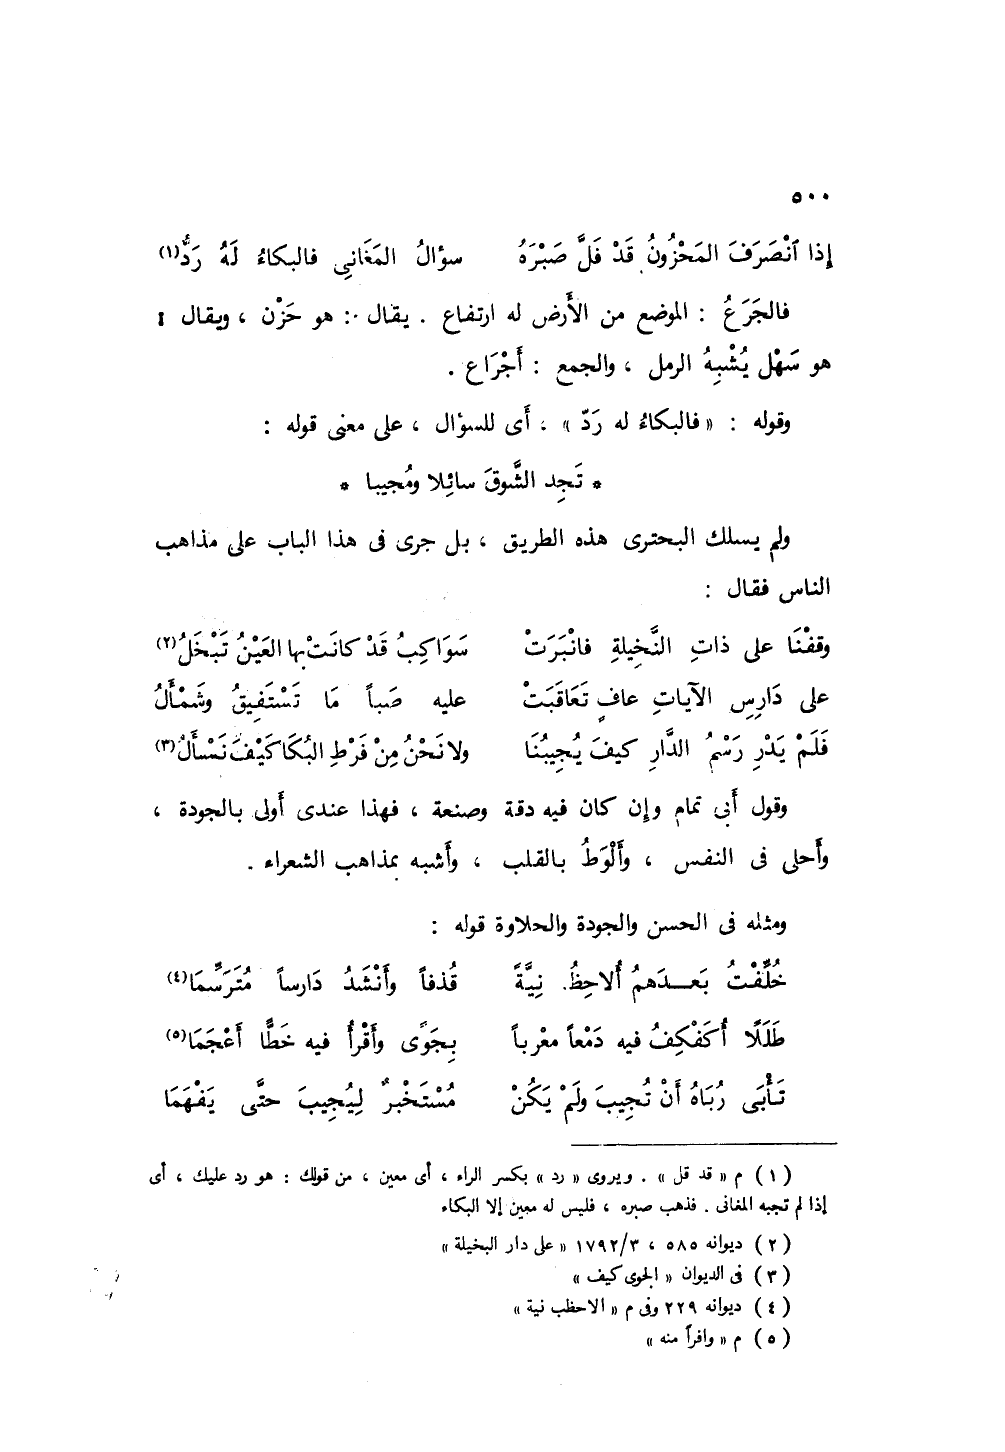 ٥٠٠
إذا ٱنْصَرَفَ المَحْزُونُ قَدْ فَلَّ صَبْرَهُ سؤالُ المَغَانِى فالبكاءُ لَهُ رَدُّ(١)
فالجَرَعُ : الموضع من الأَرض له ارتفاع . يقال : هو حَزْن ، ويقال :
هو سَهْل يُشْبِهُ الرمل ، والجمع : أَجْرَاع .
وقوله : « فالبكاءُ له رَدّ » ، أَى للسؤال ، على معنى قوله :
* تَجِد الشَّوقَ سائِلا ومُجيبا *
ولم يسلك البحترى هذه الطريق ، بل جرى فى هذا الباب على مذاهب
الناس فقال :
وقفْنَا على ذاتِ النَّخيلةِ فانْبَرَتْ سَوَاكِبُ قَدْ كانَتْ بها العَيْنُ تَبْخَلُ(٢)
على دَارِسِ الآياتِ عافٍ تَعَاقَبَتْ عليه صَباً مَا تَسْتَفِيقُ وشَمْأَلُ
فَلَمْ يَدْرِ رَسْمُ الدَّارِ كيفَ يُجيبُنَا ولا نَحْنُ مِنْ فَرْطِ البُكَا كَيْفَ نَسْأَلُ(٣)
وقول أَبى تمام وإن كان فيه دقة وصنعة ، فهذا عندى أَولى بالجودة ،
وأَحلى فى النفس ، وأَلْوَطُ بالقلب ، وأَشبه بمذاهب الشعراء .
ومثله فى الحسن والجودة والحلاوة قوله :
خُلِّفْتُ بَعدَهمُ أُلاحِظُ نِيَّةً قُذفاً وأَنْشُدُ دَارساً مُتَرَسِّمَا(٤)
طَلَلًا أُكَفْكِفُ فيه دَمْعاً معْرباً بِجَوًى وأَقْرأُ فيه خَطًّا أَعْجَمَا(٥)
تَأْبَى رُبَاهُ أَنْ تُجِيبَ ولَمْ يَكُنْ مُسْتَخْبرٌ لِيُجِيبَ حتَّى يَفْهَمَا
(١) م « قد قل » . ويروى « رد » بكسر الراء ، أى معين ، من قولك : هو رد عليك ، أى
إذا لم تجبه المغانى . فذهب صبره ، فليس له معين إلا البكاء
(٢) ديوانه ٥٨٥ ، ١٧٩٢/٣ « على دار البخيلة »
(٣) فى الديوان « الجوى كيف »
(٤) ديوانه ٢٢٩ وفى م « الاحظب نية »
(٥) م « وافرأ منه »